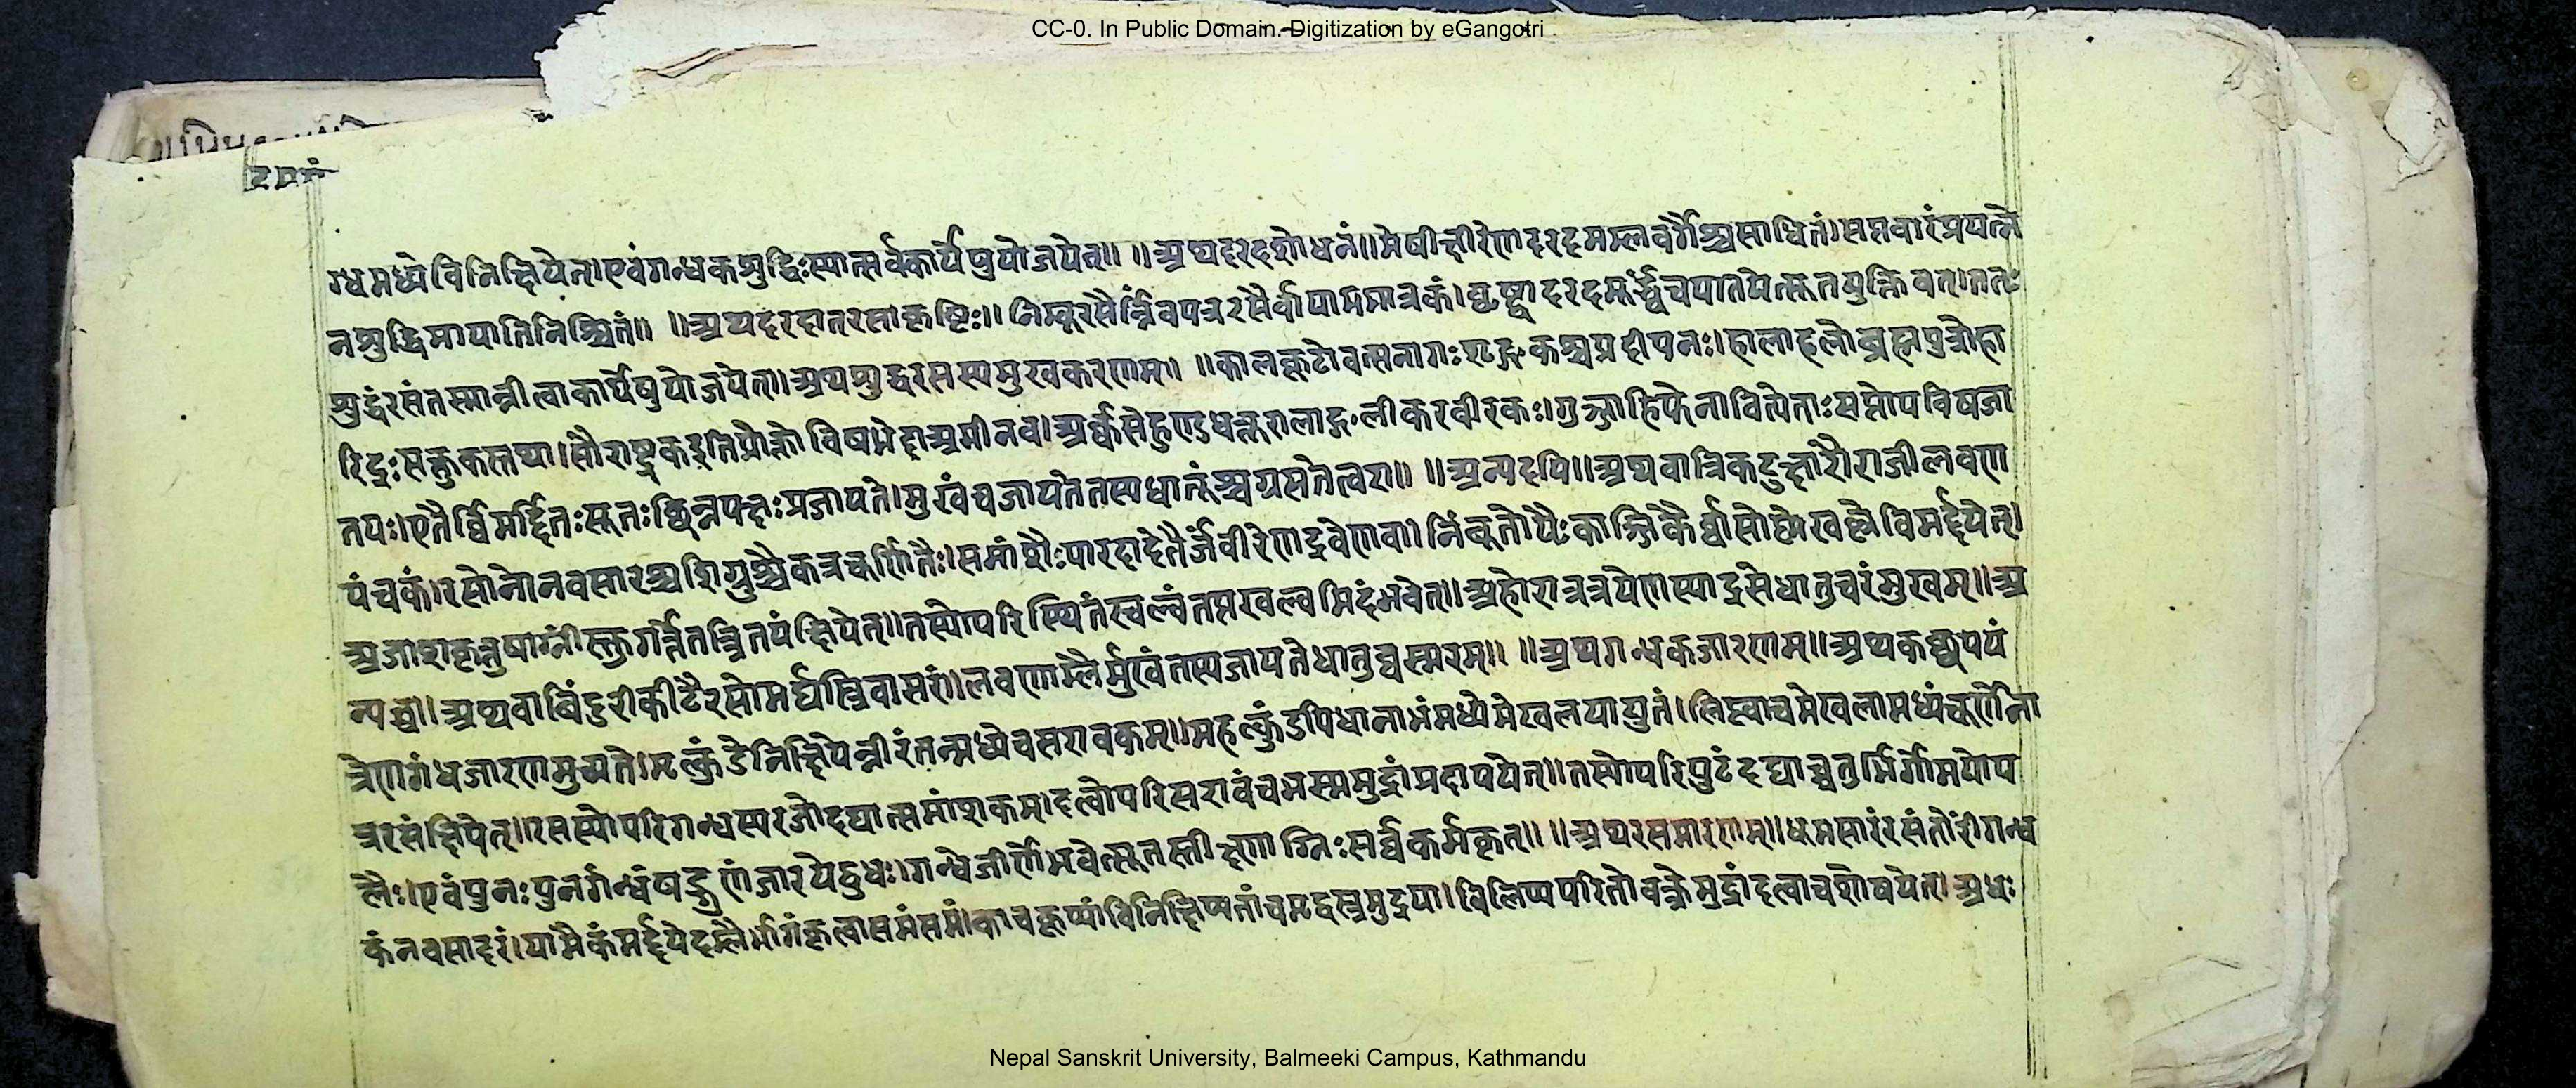 CC-0. In Public Domain. Digitization by eGangotri
ग्धमध्ये विनिक्षिपेत्। एवं गन्धकशुद्धिः स्यात्सर्वकार्येषु योजयेत्॥ ॥ अथ दरदशोधनं॥ मेषीक्षीरेण दरदमम्लवर्गैश्च साधितं। सप्तवारं प्रयत्ने
न शुद्धिमायाति निश्चितं॥ ॥ अथ दरदात् रसाकृष्टिः॥ निम्बूरसैर्न्निंवपत्ररसैर्वा याममात्रकं। घृष्ट्वा दरदमूर्द्ध्वं च पातयेत्सूतयुक्तिवत्। ततः
शुद्धं रसं तस्मान्नीत्वा कार्येषु योजयेत्॥ अथ शुद्धरसस्य मुखकरणम्॥ ॥ कालकूटो वत्सनागः शृङ्गकश्च प्रदीपनः। हालाहलो ब्रह्मपुत्रो हा
रिद्रः सक्तुकस्तथा। सौराष्ट्रक इति प्रोक्तो विषभेदा अमी नव। अर्क्कसेहुण्डधत्तूरलाङ्गलीकरवीरकः। गुञ्जाहिफेनावित्येताः सप्तोपविषजा
तयः। एतैर्व्विमर्द्दितः सूतः छिन्नपक्षः प्रजायते। मुखं च जायते तस्य धातूंश्च ग्रसते त्वरा॥ ॥ अन्यदपि॥ अथवा त्रिकटुक्षारौ राजी लवण
पंचकं। रसोनो नवसारश्च शिग्रुश्चैकत्र चूर्णितैः। समांशैः पारदादेतैर्जंवीरेण द्रवेण वा। निंबूतोयैः काञ्जिकैर्व्वा सोष्णे खल्वे विमर्द्दयेत्।
अजाशकृत्तुषाग्नीस्तु गर्त्ते तत्त्रितयं क्षिपेत्॥ तस्योपरि स्थितं खल्वं तप्तखल्वमिदं भवेत्॥ अहोरात्रत्रयेण स्याद्रसे धातुचरं मुखम्॥ अ
न्यच्च॥ अथवा बिंदुरीकीटै रसो मर्द्यस्त्रिवासरं। लवणाम्लैर्मुखं तस्य जायते धातुघस्मरम्॥ ॥ अथ गन्धकजारणम्॥ अथ कच्छपयं
त्रेण गंधजारणमुच्यते। मृत्कुंडे निक्षिपेन्नीरं तन्मध्ये च सरावकम्॥ महत्कुंडपिधानाभं मध्ये मेखलया युतं। लिप्त्वा च मेखलामध्यं चूर्णेना
त्र रसं क्षिपेत्॥ रसस्योपरि गन्धस्य रजो दद्यात्समांशकम्। दत्वोपरि सरावं च भस्ममुद्रां प्रदापयेत्॥ तस्योपरि पुटं दद्याच्चतुर्भिर्गोमयोप
लैः। एवं पुनः पुनर्गन्धं षड्गुणं जारयेद्बुधः। गन्धे जीर्णे भवेत्सूतस्तीक्ष्णाग्निः सर्व्वकर्मकृत्॥ ॥ अथ रसमारणम्॥ धूमसारं रसं तोरीं गन्ध
कं नवसादरं। यामैकं मर्द्दयेदम्लैर्भागं कृत्वा समं समं। काचकूप्यां विनिक्षिप्य तां च मृद्वस्त्रमुद्रया। विलिप्य परितो वक्त्रे मुद्रां दत्वा च शोषयेत्। अधः
Nepal Sanskrit University, Balmeeki Campus, Kathmandu